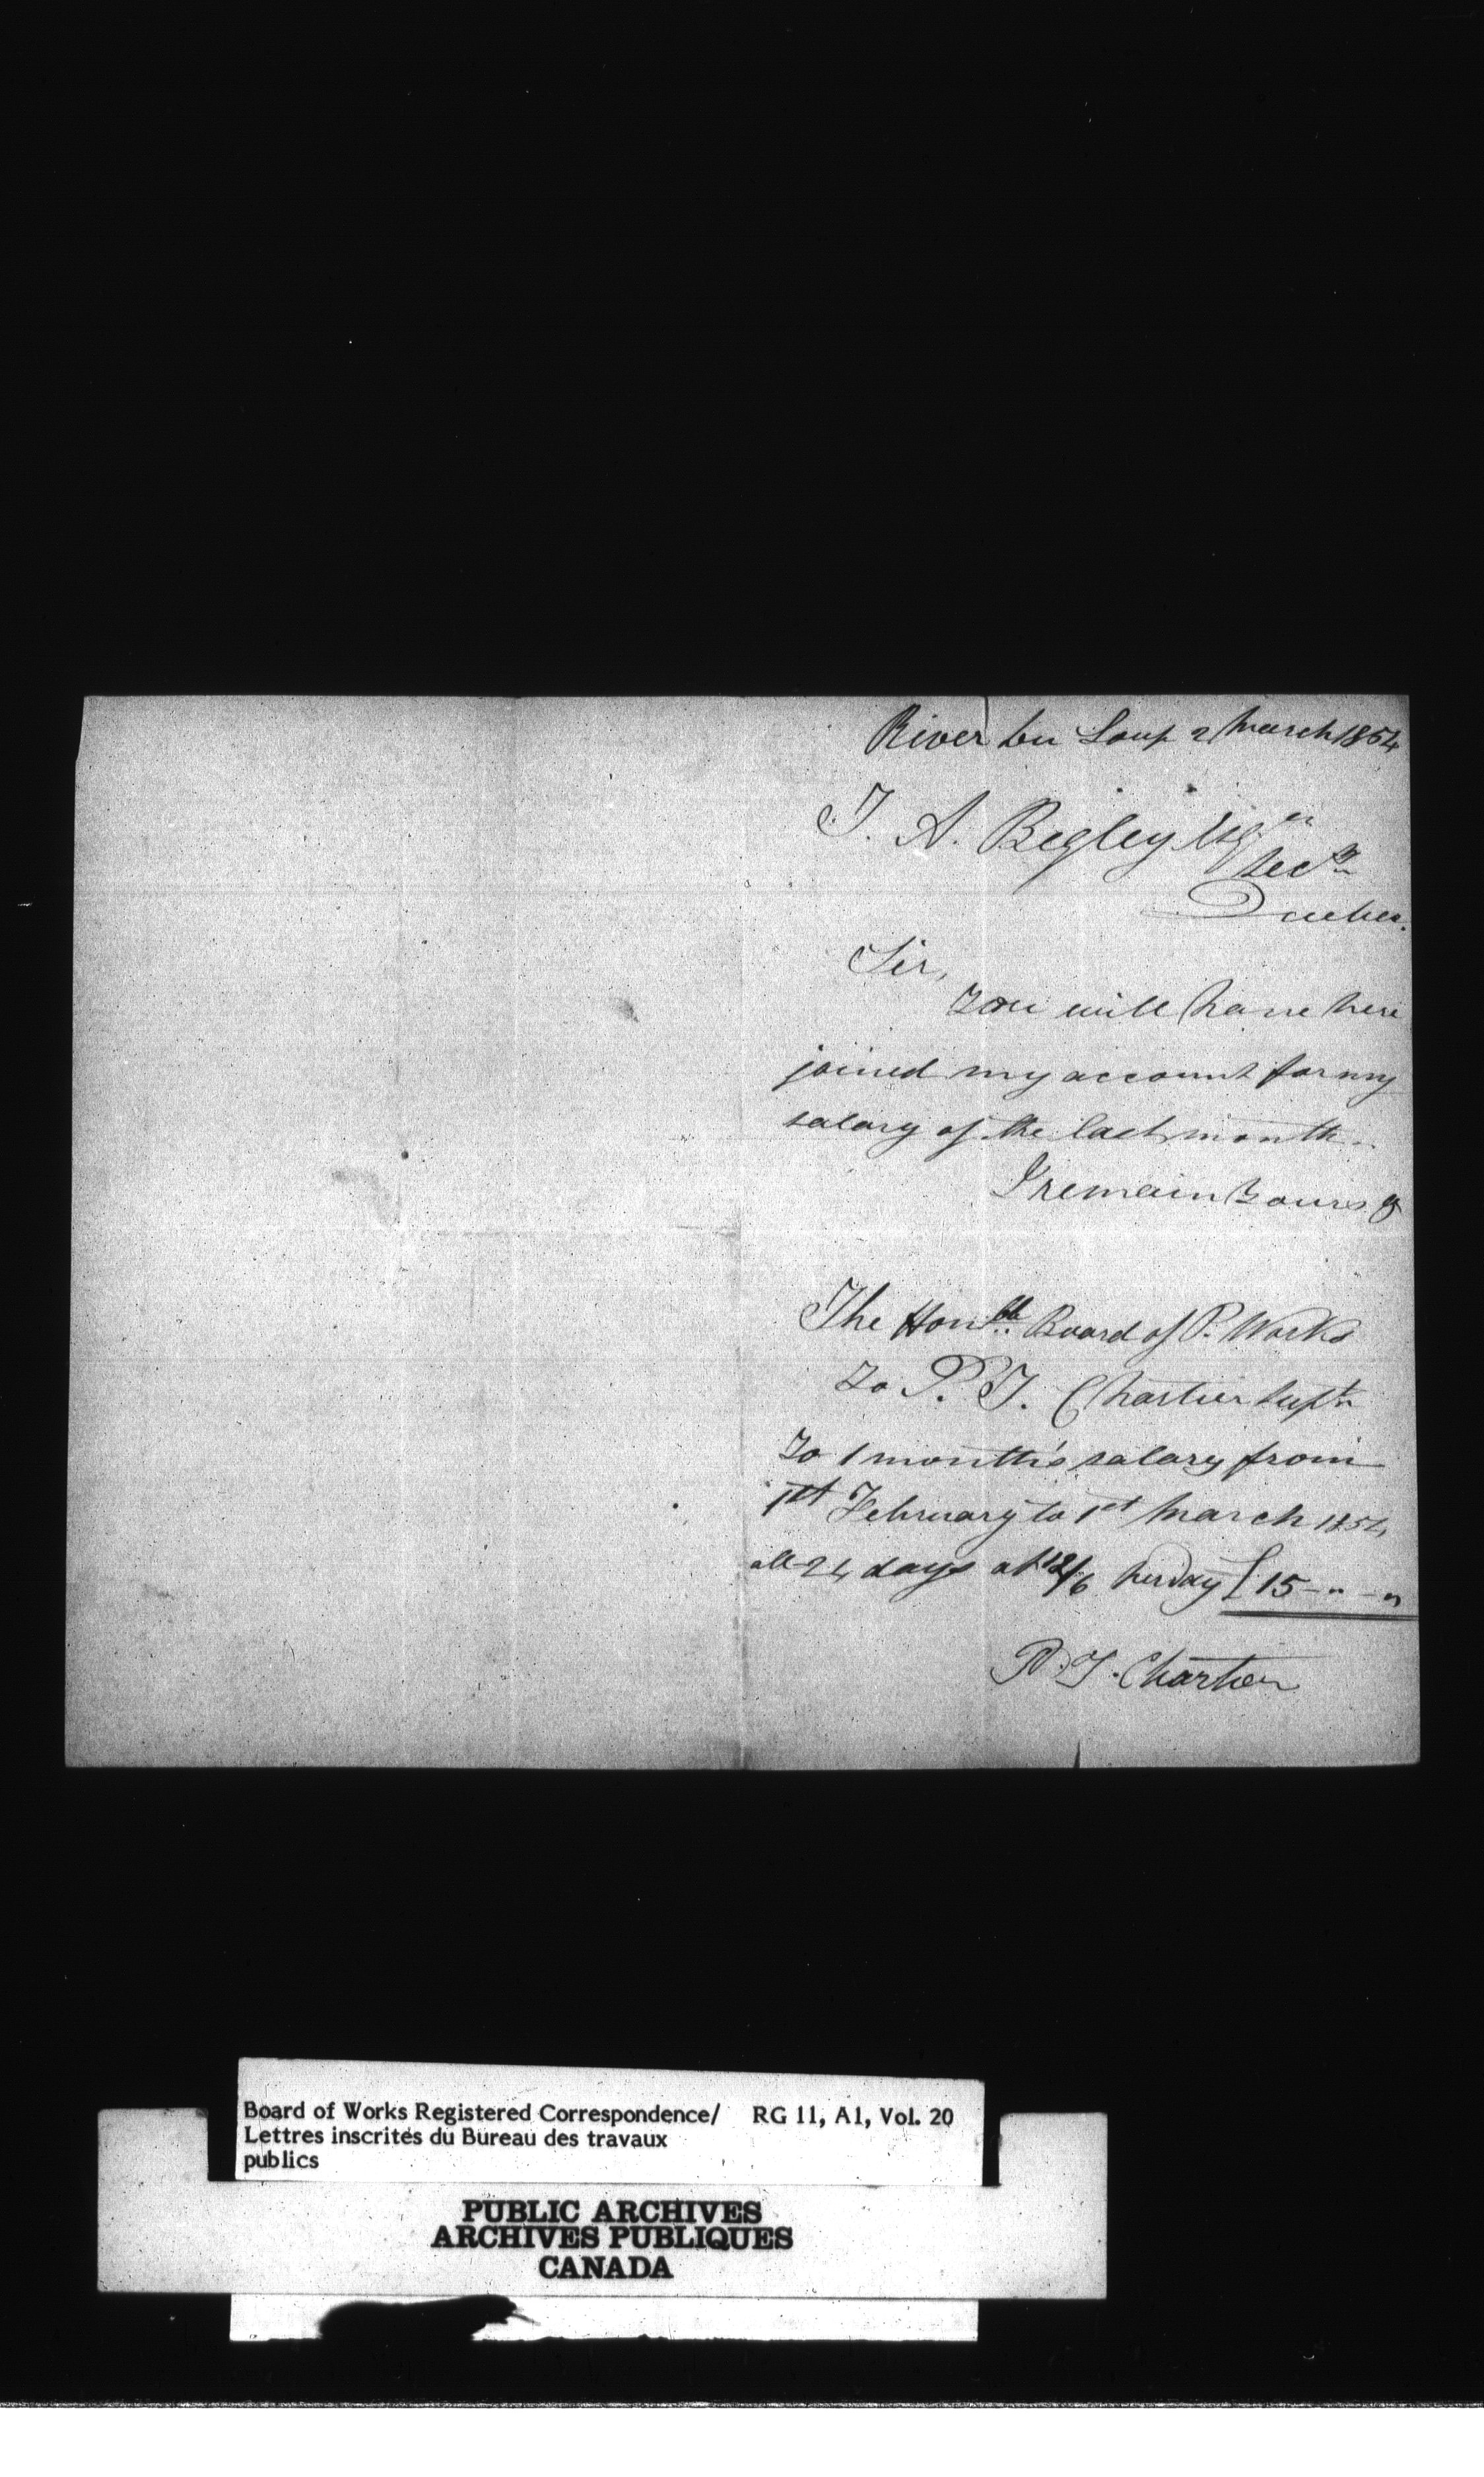 River du Loup 2 March 1854
T. A. Begley Esqr
Secry
Quebec.
Sir,
You will have here
joined my account for my
salary of the last month.
I remain Yours &
The Honble Board of P. Works
To P. T. Chartier Supt
To 1 month's salary from
1st February to 1st March 1854
all 24 days at 12/6 per day £15-"-"
P. T. Chartier
Board of Works Registered Correspondence/ RG 11, A1, Vol. 20
Lettres inscrites du Bureau des travaux
publics
PUBLIC ARCHIVES
ARCHIVES PUBLIQUES
CANADA